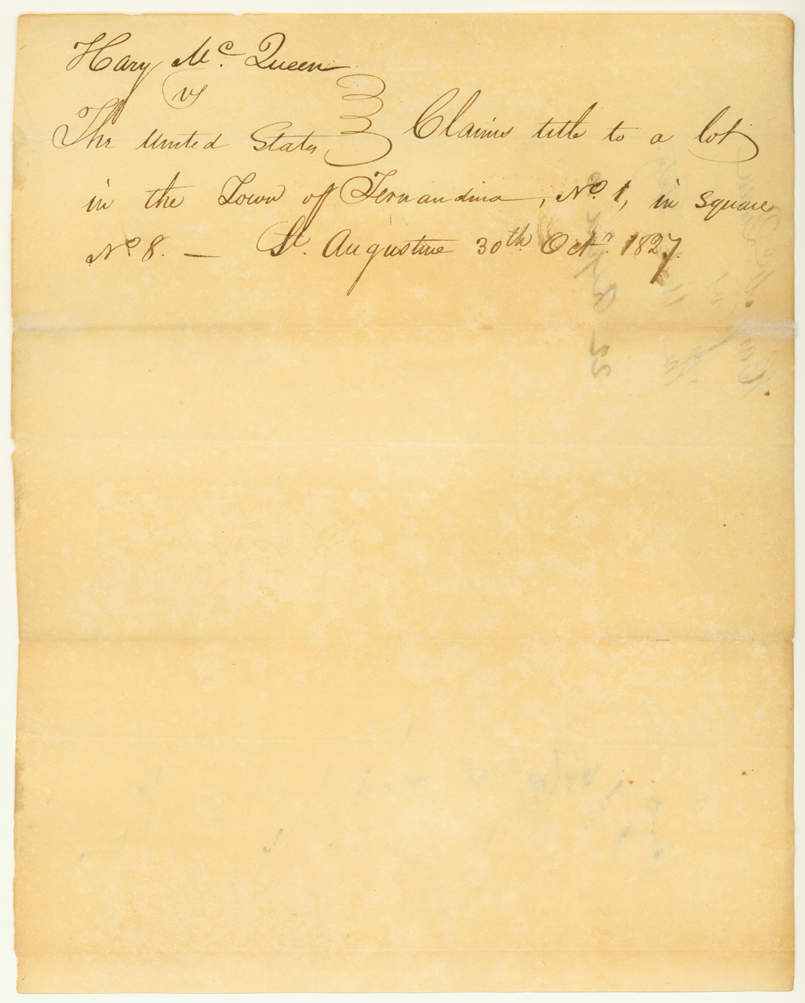 Hary McQueen
vs
The United States } Claims title to a lot
in the Town of Fernandina, No. 1, in Square
No 8. — St. Augustine 30th Octr. 1827.